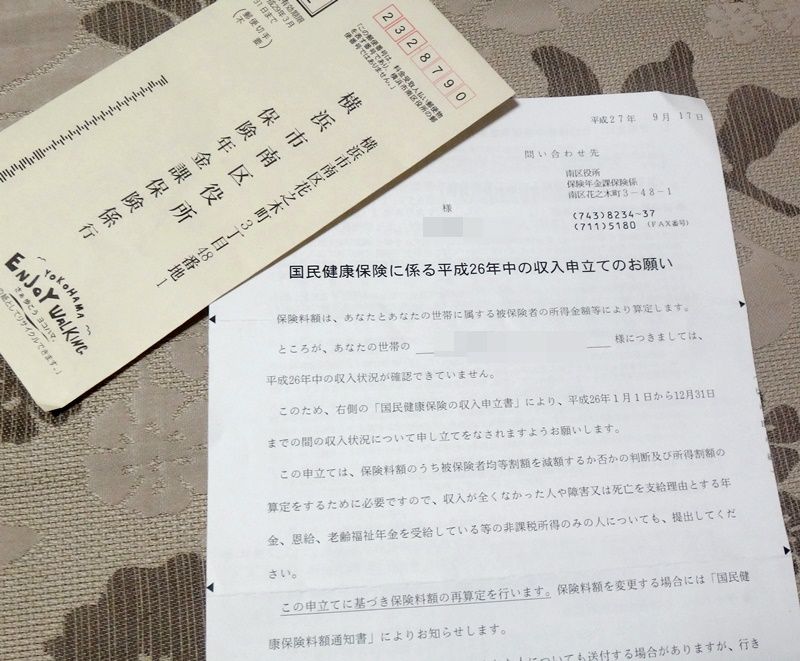 2328790
「この郵便番号は、料金受取人払い郵便物
を表す番号であり、横浜市南区役所の郵
便番号ではありません。」
有効期限
平成29年3月
31日まで
(不要)
郵便切手
横浜市南区花之木町3丁目48番地1
横浜市南区役所
保険年金課保険係 行
YOKOHAMA
ENJOY WALKING
さぁ歩こう ヨコハマ。
の紙としてリサイクルできます。」
平成27年 9月17日
問い合わせ先
南区役所
保険年金課保険係
南区花之木町3-48-1
様
(743)8234~37
(711)5180 (FAX番号)
国民健康保険に係る平成26年中の収入申立てのお願い
保険料額は、あなたとあなたの世帯に属する被保険者の所得金額等により算定します。
ところが、あなたの世帯の 様につきましては、
平成26年中の収入状況が確認できていません。
このため、右側の「国民健康保険の収入申立書」により、平成26年1月1日から12月31日
までの間の収入状況について申し立てをなされますようお願いします。
この申立ては、保険料額のうち被保険者均等割額を減額するか否かの判断及び所得割額の
算定をするために必要ですので、収入が全くなかった人や障害又は死亡を支給理由とする年
金、恩給、老齢福祉年金を受給している等の非課税所得のみの人についても、提出してくだ
さい。
この申立てに基づき保険料額の再算定を行います。保険料額を変更する場合には「国民健
康保険料額通知書」によりお知らせします。
た人についても送付する場合がありますが、行き